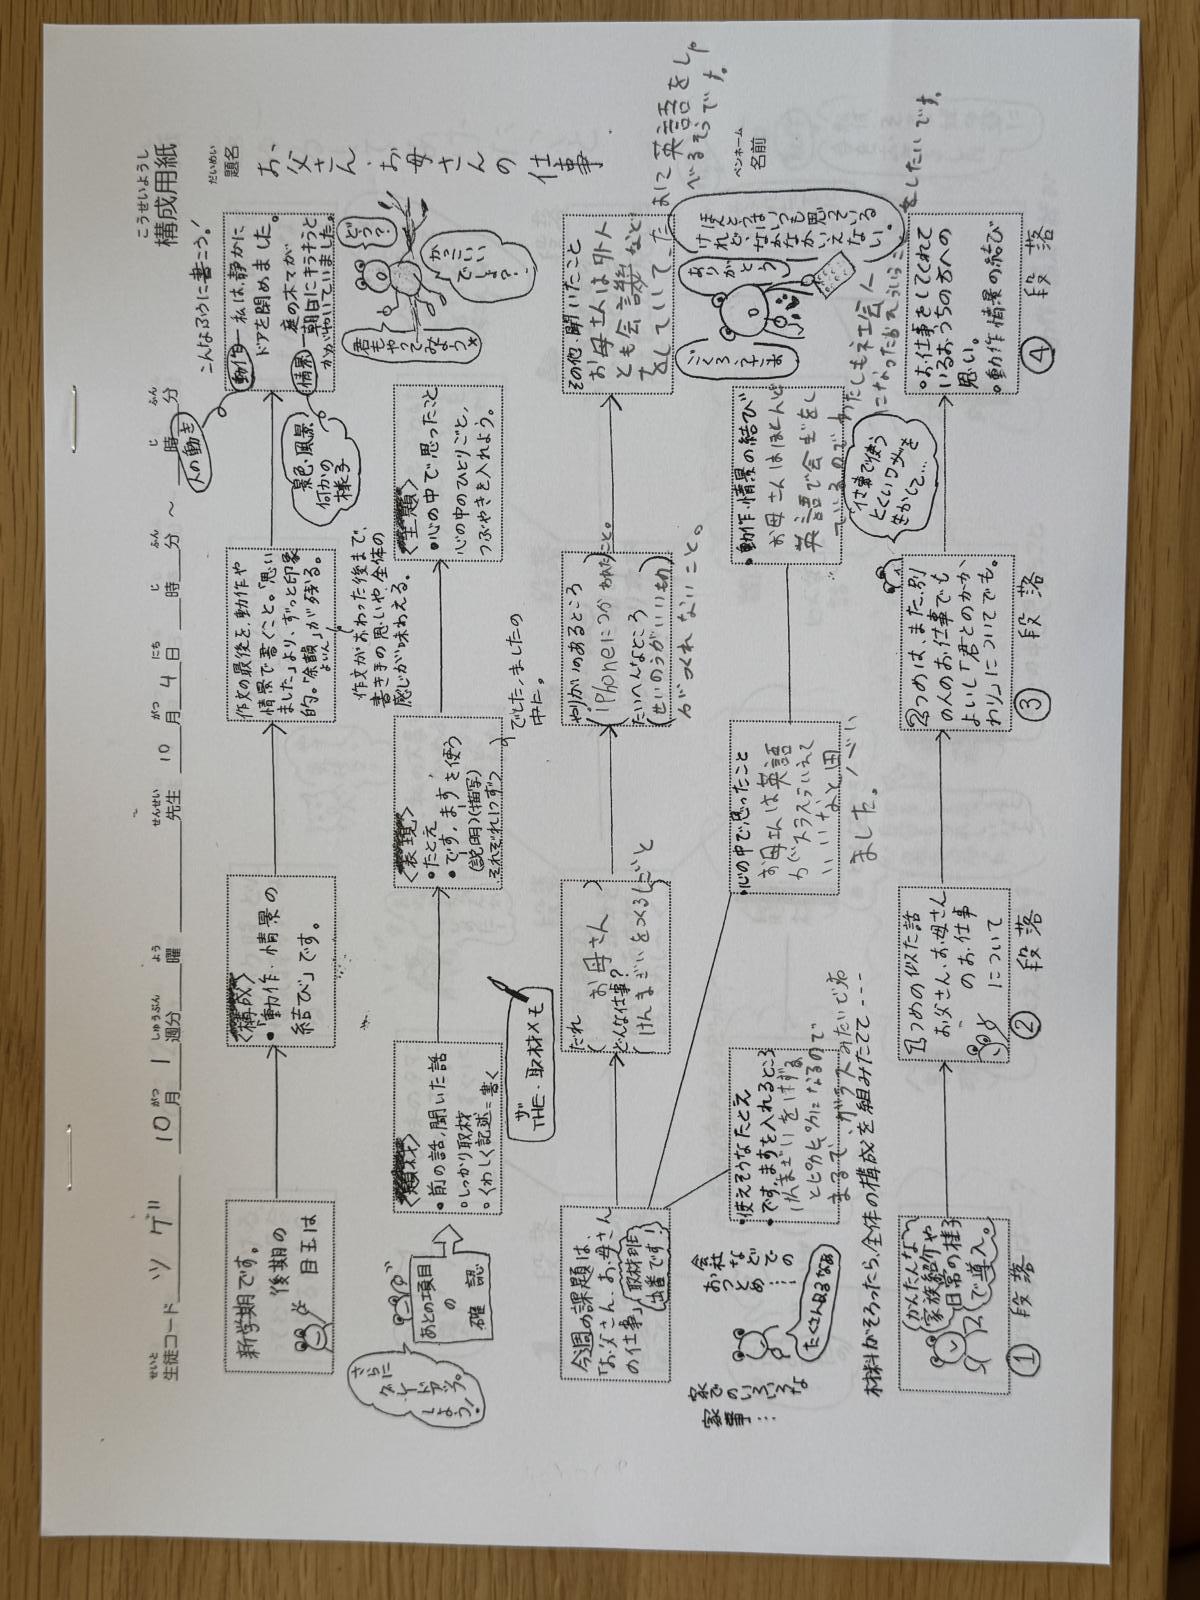 こうせいようし
構成用紙
だいめい
題名
お父さん・お母さんの仕事
ペンネーム
名前
せいと
生徒コード ツゲ 10月 1週分 曜 先生 10月 4日 時 分 ～ 時 分
新学期です。
後期の
目玉は
〈構成〉
・「動作・情景の
結び」です。
作文の最後を、動作や
情景で書くこと。「思い
ました」より、ずっと印象
的。「余韻」が残る。
よいん
作文がおわった後まで、
書き手の思いや、全体の
感じが味わえる。
こんなふうに書こう!
動作―私は、静かに
ドアを閉めました。
情景―庭の木々が
朝日にキラキラと
かがやいていました。
人の動き
景色・風景、
何かの
様子
どう?
かっこいい
でしょ?
君も
やって
みよう
さらに
グレードアップ
しよう!
あとの項目
の
確認
〈題材〉
・前の話、聞いた話
・しっかり取材
・くわしく記述=書く
〈表現〉
・たとえ
・です、ますを使う
(説明)(描写)
それぞれ1つずつ
でした、ましたの
中に。
〈主題〉
・心の中で思ったこと
心の中のひとりごと、
つぶやきを入れよう。
ザ
THE・取材メモ
今週の課題は、
「お父さん、お母さん
の仕事」
取材班
出番です!
だれ
お母さん
どんな仕事?
けんまざいをつくるしごと
やりがいのあるところ
iPhoneにつかわれたこと。
たいへんなところ
せいのうがいいもの
がつくれないこと。
その他・聞いたこと
お母さんは外人
とも会議など
をしていて、た
まに英語をしゃ
べるそうです。
お
会社
つとめ
などでの…
家での
いろいろな
家事…
たくさんあるなぁ
・使えそうなたとえ
・です、ますを入れるところ
けんまざいをまぜる
とピカピカになるので
まるで、ガラスみたいでね
・心の中で思ったこと
お母さんは英語
がスラスラいえて
いいなと思い
ました。
・動作・情景の結び
お母さんはほとんど
英語で会ぎをし
ているので、わたしも社会人
になったら
をしたいです。
ごくろうさま
ありがとう
ほんとうは
いつも思っている
けれど、なかなかいえない。
材料がそろったら、全体の構成を組みたてて----
かんたんな
家族紹介や
日常の様子
で導入。
1つめの似た話
お父さん、お母さん
のお仕事
について
2つめは、また別
の人のお仕事でも
よいし「君とのかか
わり」についてでも。
仕事で使う
とくいワザを
生かして…
・お仕事をしてくれて
いるおうちの方への
思い。
・動作・情景の結び
① 段落
② 段落
③ 段落
④ 段落